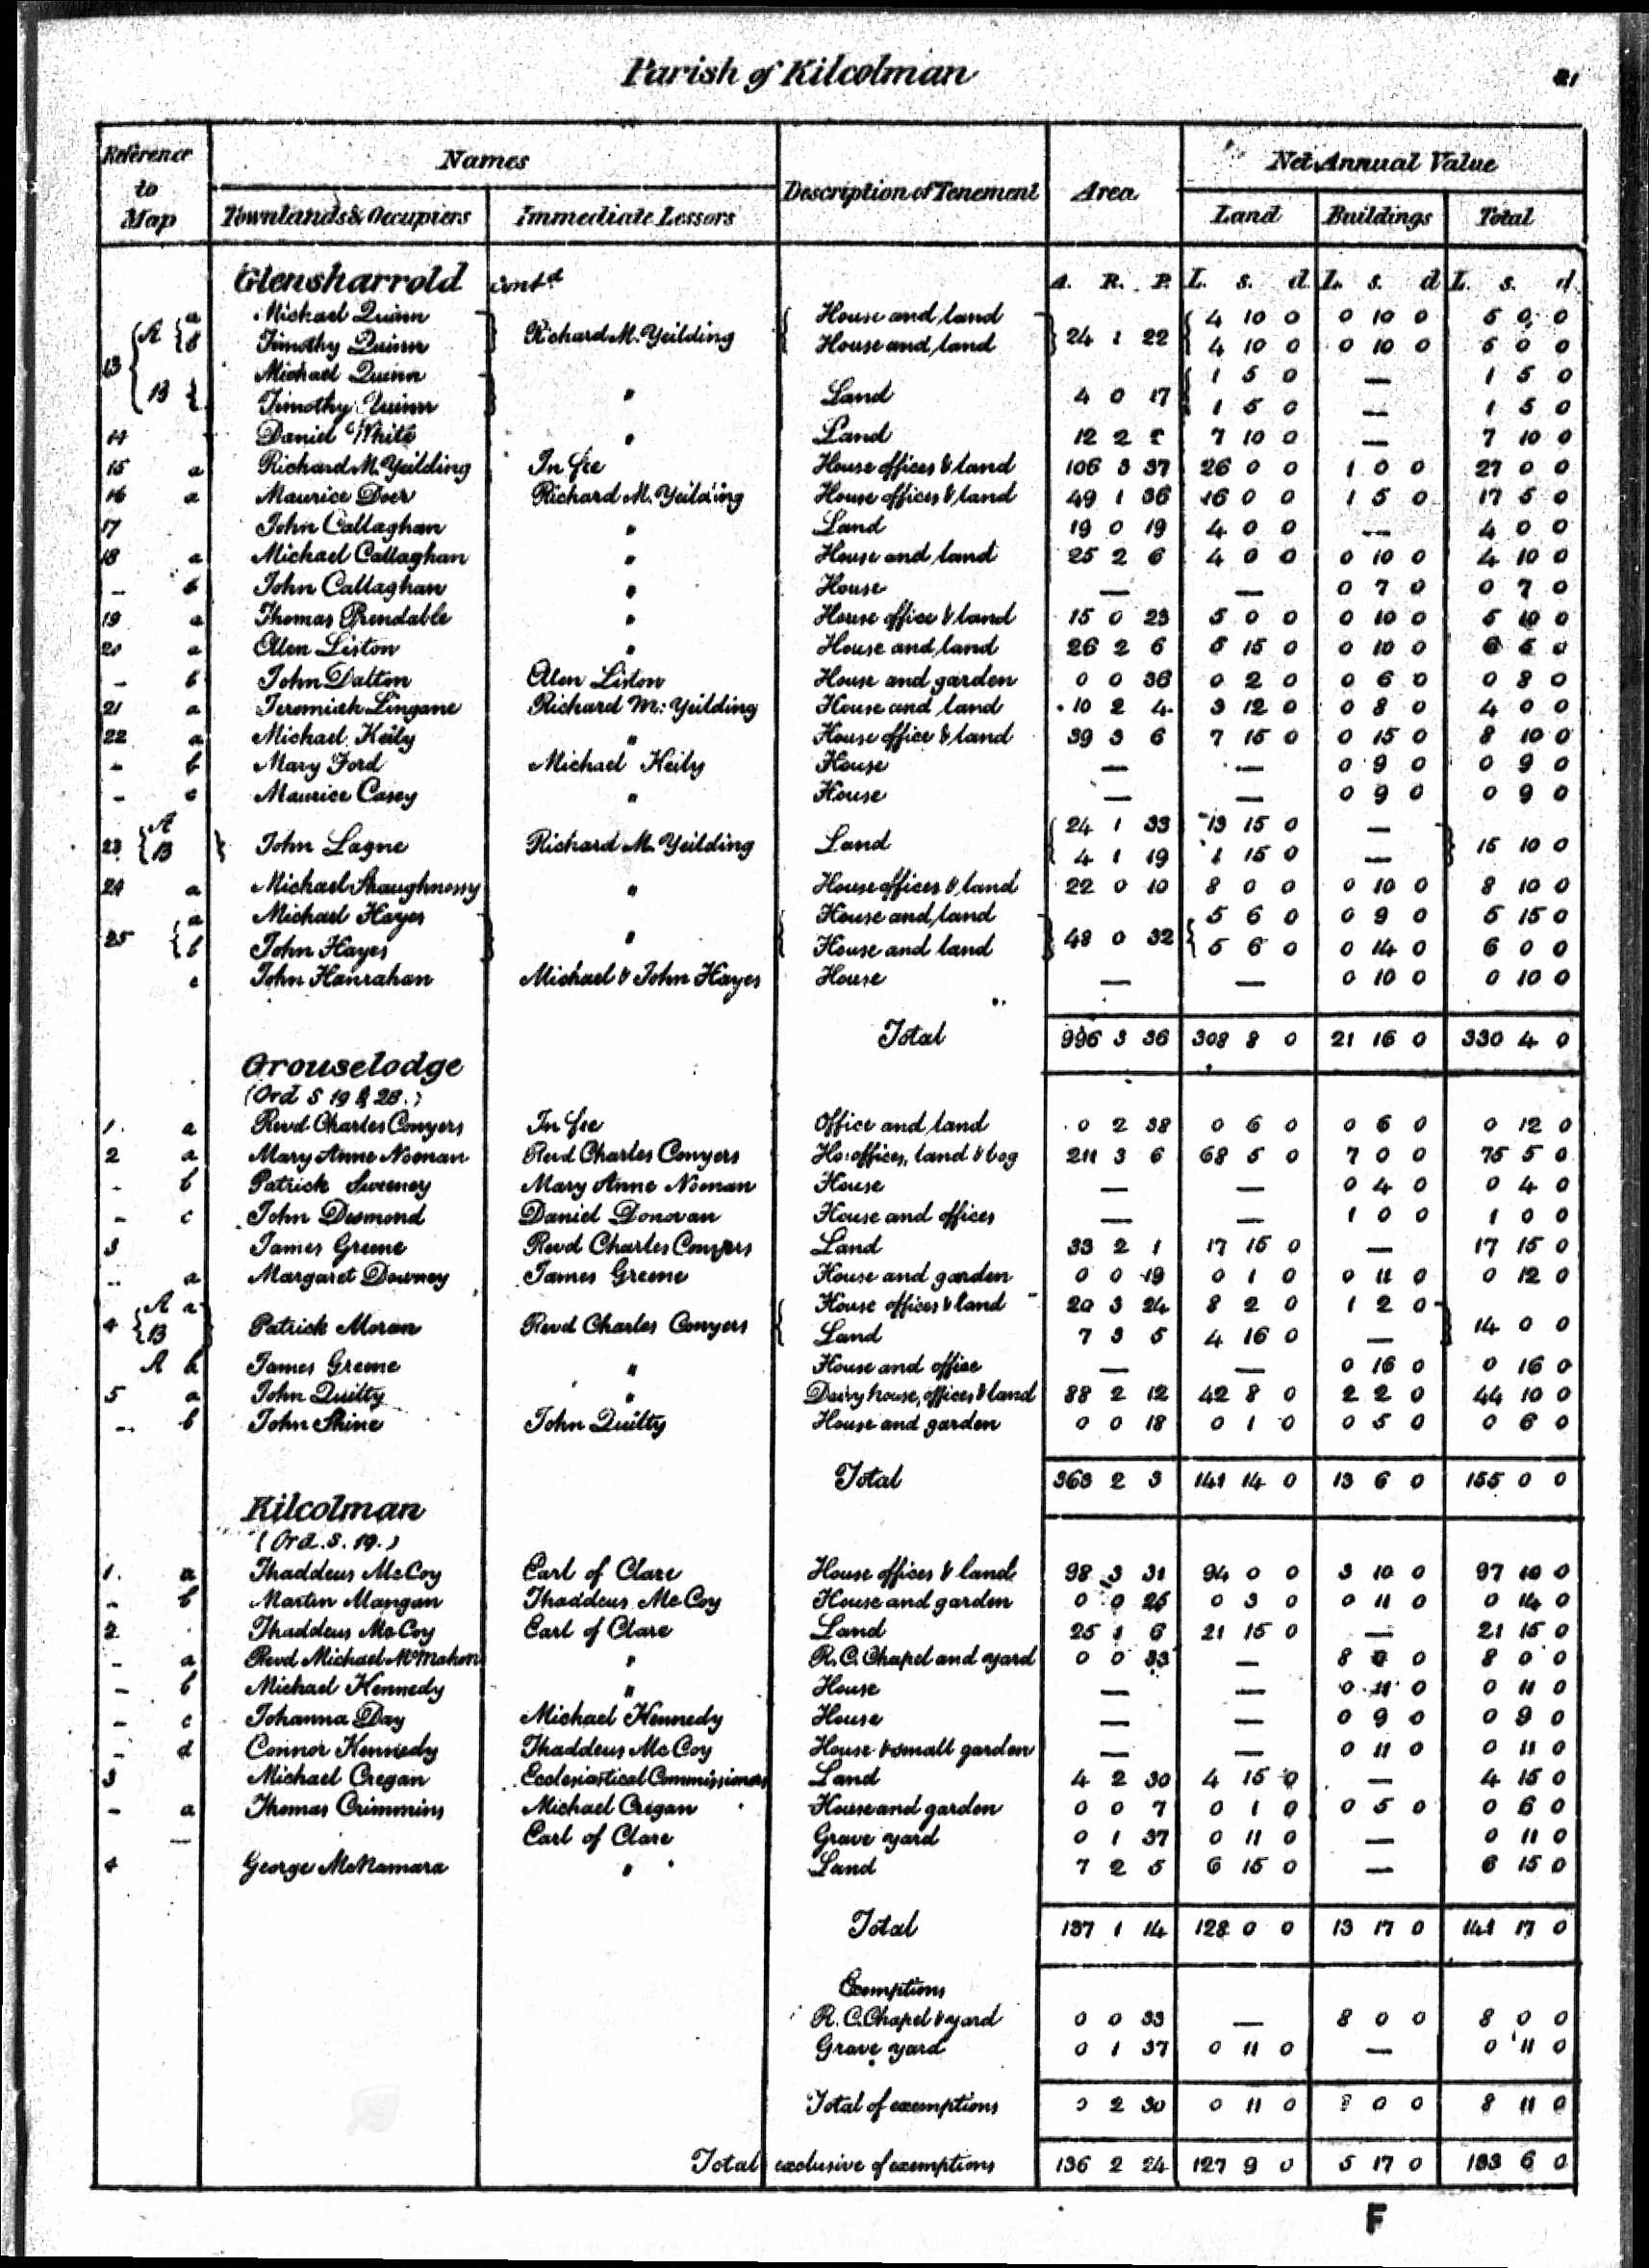 Parish of Kilcolman 21
Reference to Map Names Description of Tenement Area Net Annual Value
Townlands & Occupiers Immediate Lessors Land Buildings Total
Glensharrold contd A. R. P. L. s. d L. s. d L. s. d
13 A a Michael Quinn Richard M. Yeilding House and land 24 1 22 4 10 0 0 10 0 5 0 0
Timothy Quinn House and land 4 10 0 0 10 0 5 0 0
B Michael Quinn " Land 4 0 17 1 5 0 — 1 5 0
Timothy Quinn 1 5 0 — 1 5 0
14 Daniel White " Land 12 2 7 10 0 — 7 10 0
15 a Richard M. Yeilding In fee House offices & land 106 3 37 26 0 0 1 0 0 27 0 0
16 a Maurice Doer Richard M. Yeilding House offices & land 49 1 36 16 0 0 1 5 0 17 5 0
17 John Callaghan " Land 19 0 19 4 0 0 — 4 0 0
18 a Michael Callaghan " House and land 25 2 6 4 0 0 0 10 0 4 10 0
– b John Callaghan " House — — 0 7 0 0 7 0
19 a Thomas Prendable " House office & land 15 0 23 5 0 0 0 10 0 5 10 0
20 a Alen Liston " House and land 26 2 6 5 15 0 0 10 0 6 5 0
– b John Dalton Alen Liston House and garden 0 0 36 0 2 0 0 6 0 0 8 0
21 a Jeremiah Lingane Richard M: Yeilding House and land 10 2 4 3 12 0 0 8 0 4 0 0
22 a Michael Keily " House office & land 39 3 6 7 15 0 0 15 0 8 10 0
– b Mary Ford Michael Keily House — — 0 9 0 0 9 0
– c Maurice Casey " House — — 0 9 0 0 9 0
23 A B John Lagne Richard M. Yeilding Land 24 1 33 13 15 0 — 15 10 0
4 1 19 1 15 0 —
24 a Michael Shaughnossy " House offices & land 22 0 10 8 0 0 0 10 0 8 10 0
25 a Michael Hayes " House and land 48 0 32 5 6 0 0 9 0 5 15 0
b John Hayes House and land 5 6 0 0 14 0 6 0 0
c John Hanrahan Michael & John Hayes House — — 0 10 0 0 10 0
Total 996 3 36 308 8 0 21 16 0 330 4 0
Grouselodge
(Ord S 19 & 28.)
1. a Revd Charles Conyers In fee Office and land 0 2 38 0 6 0 0 6 0 0 12 0
2 a Mary Anne Noonan Revd Charles Conyers Ho: offices, land & bog 211 3 6 68 5 0 7 0 0 75 5 0
– b Patrick Sweeney Mary Anne Noonan House — — 0 4 0 0 4 0
– c John Desmond Daniel Donovan House and offices — — 1 0 0 1 0 0
3 James Greene Revd Charles Conyers Land 33 2 1 17 15 0 — 17 15 0
– a Margaret Downey James Greene House and garden 0 0 19 0 1 0 0 11 0 0 12 0
4 A a Patrick Moran Revd Charles Conyers House offices & land 20 3 24 8 2 0 1 2 0 14 0 0
B Land 7 3 5 4 16 0 —
A b James Greene " House and office — — 0 16 0 0 16 0
5 a John Quilty " Dairy house, offices & land 88 2 12 42 8 0 2 2 0 44 10 0
– b John Shine John Quilty House and garden 0 0 18 0 1 0 0 5 0 0 6 0
Total 363 2 3 141 14 0 13 6 0 155 0 0
Kilcolman
(Ord. S. 19.)
1. a Thaddeus McCoy Earl of Clare House offices & land 98 3 31 94 0 0 3 10 0 97 10 0
– b Martin Mangan Thaddeus McCoy House and garden 0 0 25 0 3 0 0 11 0 0 14 0
2 Thaddeus McCoy Earl of Clare Land 25 1 6 21 15 0 — 21 15 0
– a Revd Michael McMahon " R.C. Chapel and yard 0 0 33 — 8 0 0 8 0 0
– b Michael Kennedy " House — — 0 11 0 0 11 0
– c Johanna Day Michael Kennedy House — — 0 9 0 0 9 0
– d Connor Kennedy Thaddeus McCoy House & small garden — — 0 11 0 0 11 0
3 Michael Cregan Ecclesiastical Commissioners Land 4 2 30 4 15 0 — 4 15 0
– a Thomas Crimmins Michael Cregan House and garden 0 0 7 0 1 0 0 5 0 0 6 0
— Earl of Clare Grave yard 0 1 37 0 11 0 — 0 11 0
4 George McNamara " Land 7 2 5 6 15 0 — 6 15 0
Total 137 1 14 128 0 0 13 17 0 141 17 0
Exemptions
R. C. Chapel & yard 0 0 33 — 8 0 0 8 0 0
Grave yard 0 1 37 0 11 0 — 0 11 0
Total of exemptions 0 2 30 0 11 0 8 0 0 8 11 0
Total exclusive of exemptions 136 2 24 127 9 0 5 17 0 133 6 0
F